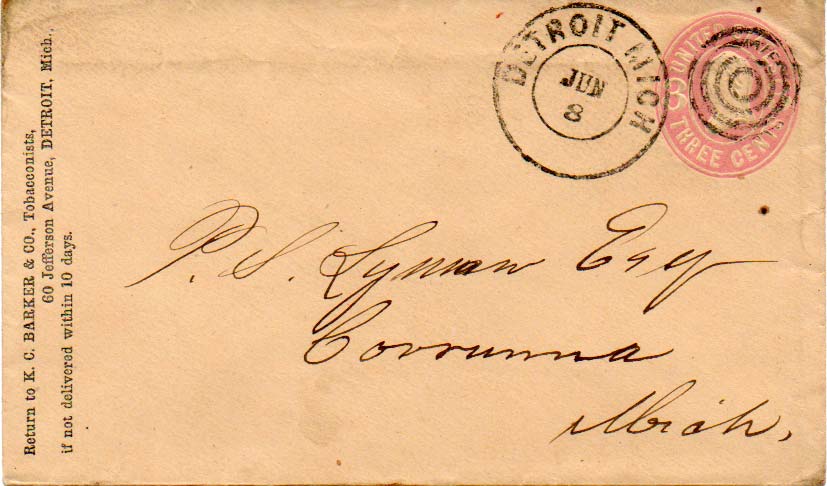 Return to K. C. BARKER & CO., Tobacconists,
60 Jefferson Avenue, DETROIT, Mich.,
if not delivered within 10 days.
DETROIT MICH
JUN
8
UNITED STATES
3
THREE CENTS
P. S. Lyman Esq
Corrunna
Mich,